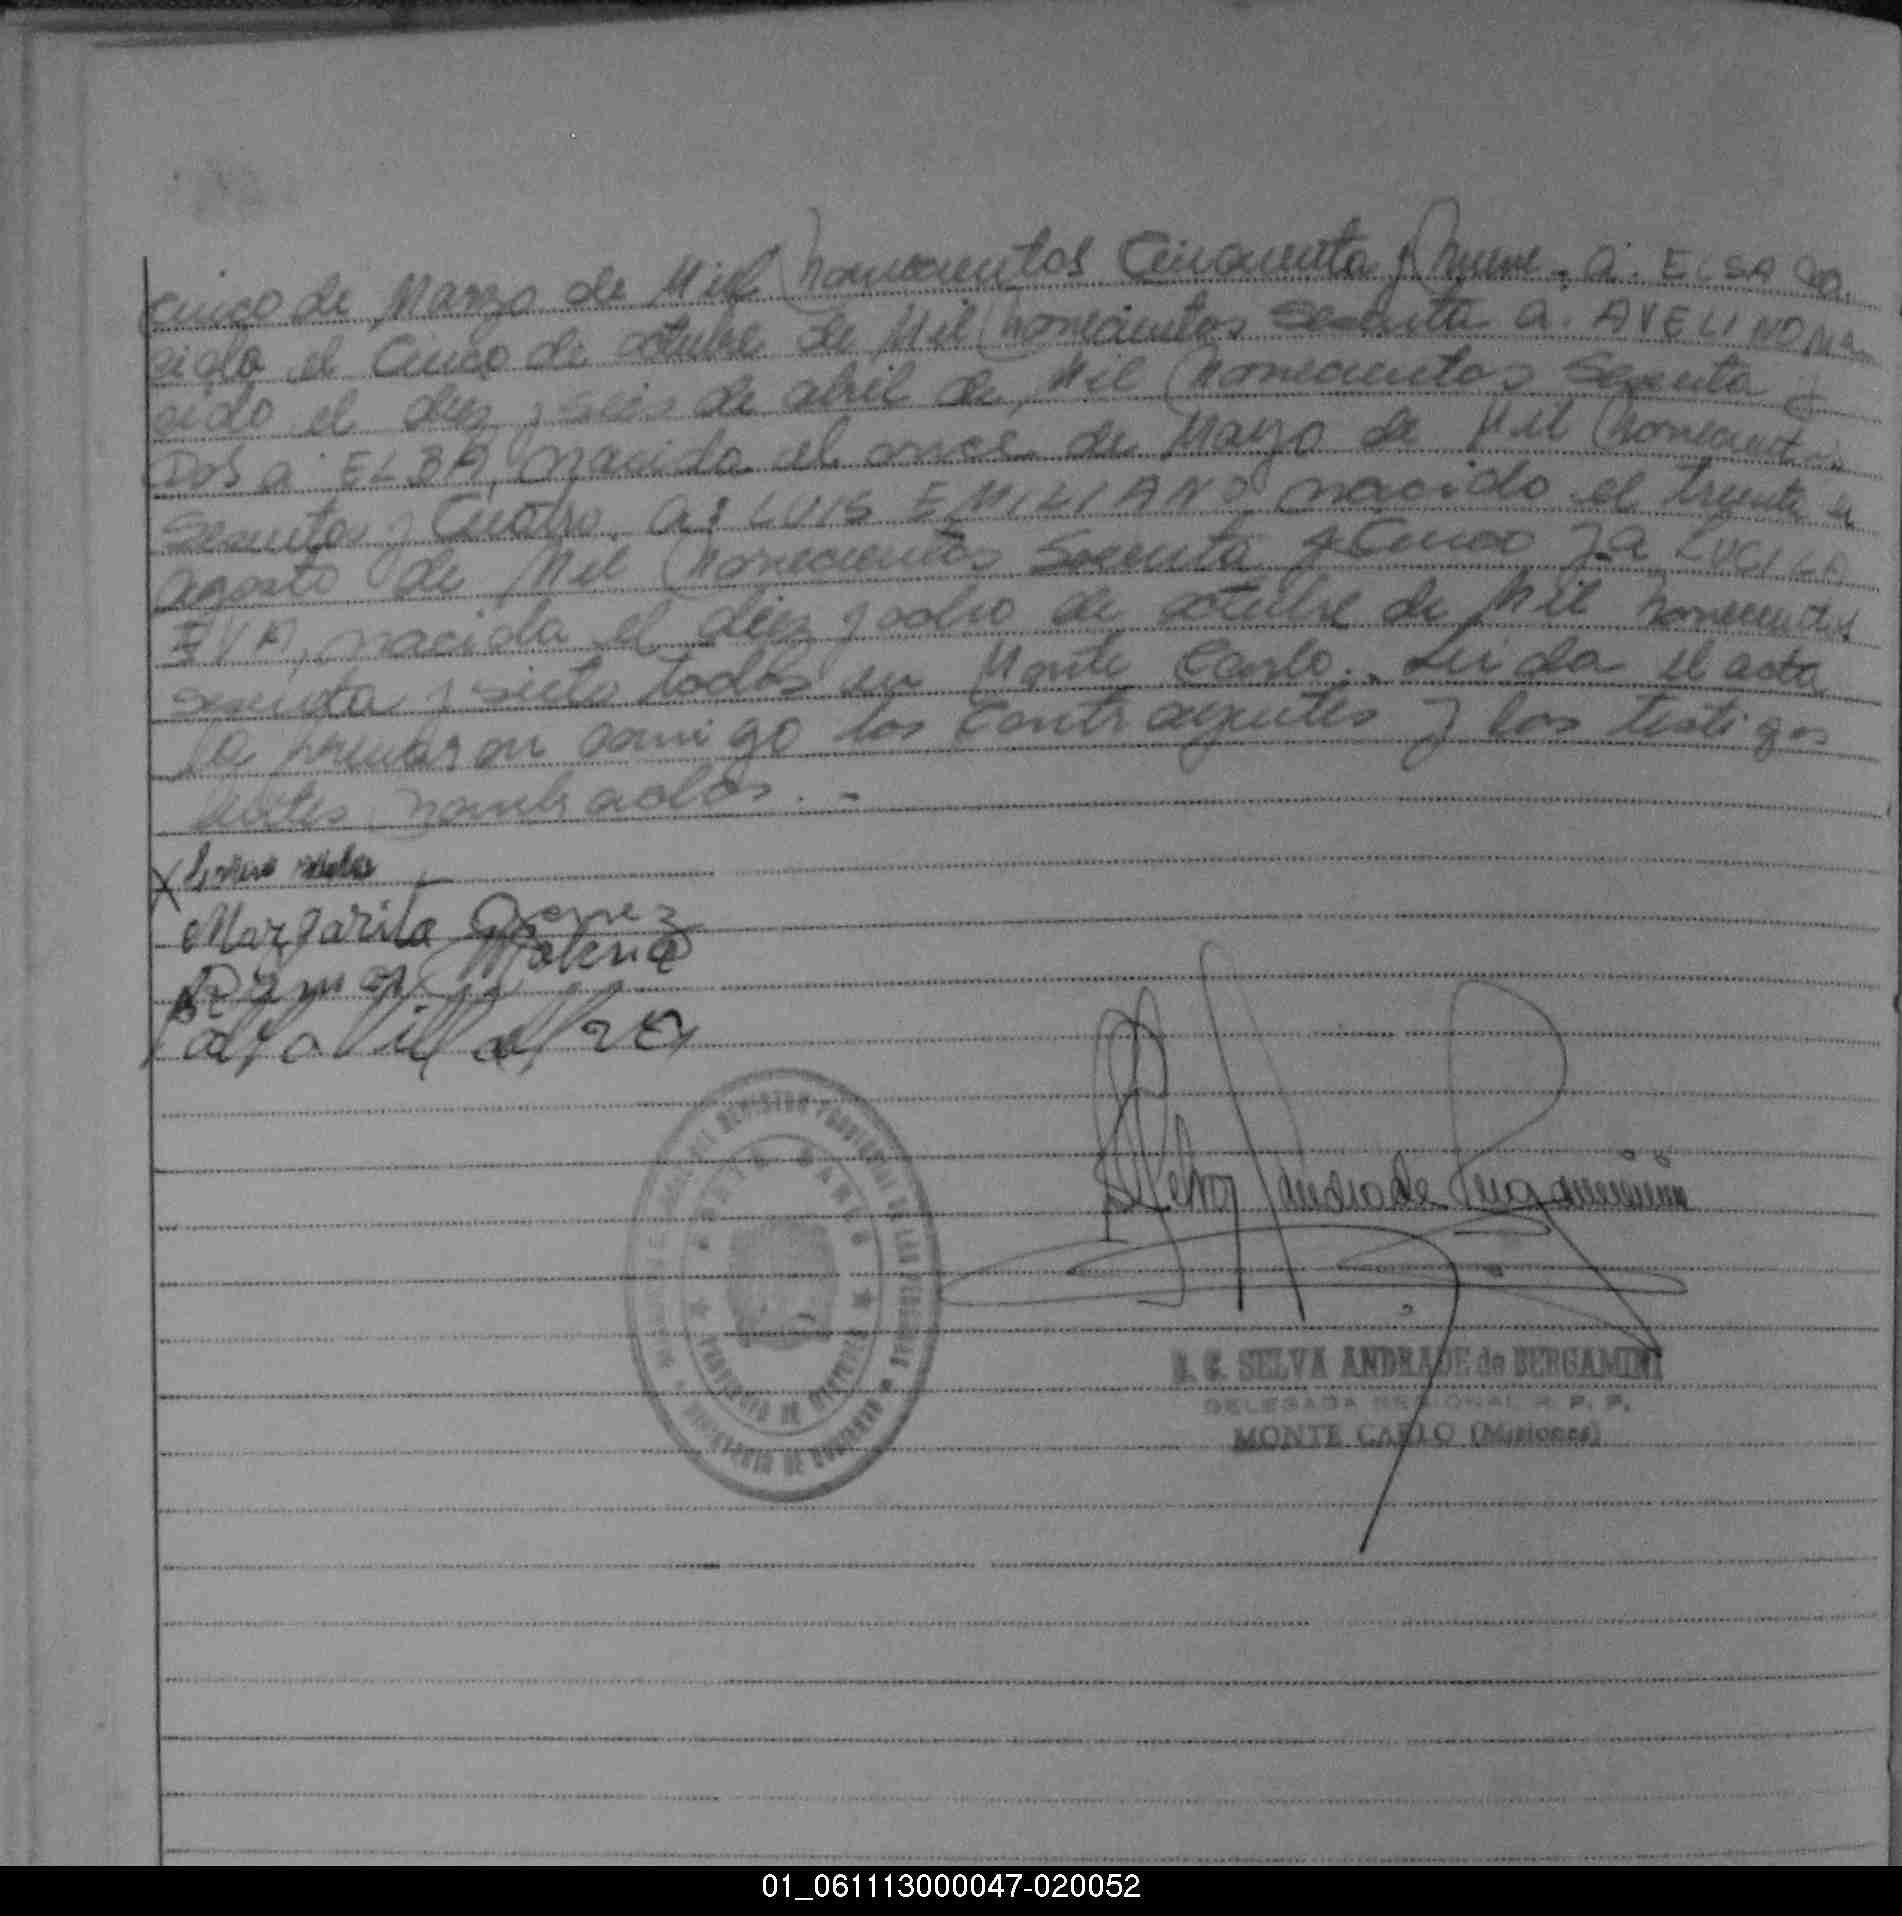 cinco de Marzo de Mil Novecientos Cincuenta y Nueve, a: ELSA na-
cida el Cinco de octubre de Mil Novecientos Sesenta a: AVELINO na-
cido el diez y seis de abril de Mil Novecientos Sesenta y
Dos a: ELBA, nacida el once de Mayo de Mil Novecientos
Sesenta y Cuatro, a: LUIS EMILIANO nacido el treinta de
agosto de Mil Novecientos Sesenta y Cinco y a LUCILA
EVA, nacida el diez y ocho de octubre de Mil Novecientos
sesenta y siete todos en Monte Carlo.- Leida el acta
la firmaron conmigo los contrayentes y los testigos
antes nombrados.-
Margarita Gomez
Ramon
Villalba
REGISTRO PROVINCIAL DE LAS PERSONAS
MONTE CARLO
PROVINCIA DE MISIONES
MINISTERIO DE GOBIERNO
Selva Andrade Bergamini
SELVA ANDRADE de BERGAMINI
DELEGADA REGIONAL R. P. P.
MONTE CARLO (Misiones)
01_061113000047-020052